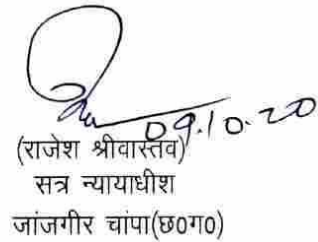 09.10.20
(राजेश श्रीवास्तव)
सत्र न्यायाधीश
जांजगीर चांपा(छ0ग0)